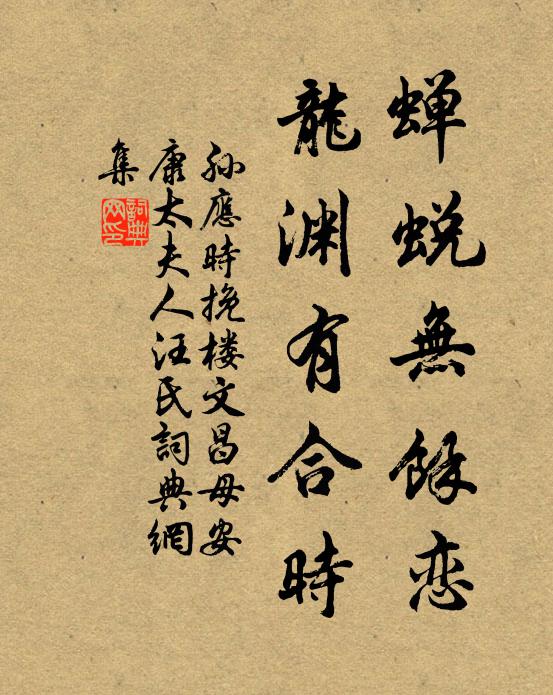 蝉蜕無餘恋
龍渊有合時
孙應時挽楼文昌母安
康太夫人汪氏詞典網
集
詞典网印